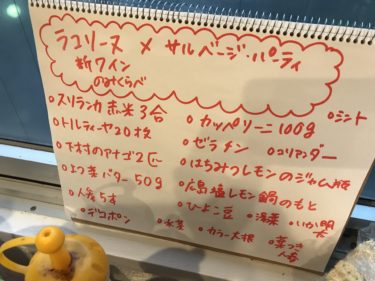 ラユリーヌ × サルベージ・パーティ
新ワイン
のみくらべ
○スリランカ 赤米 3合
○トルティーヤ20枚
○下村のアナゴ2匹
○よつ葉バター50g
○人参5本
○デコポン
○カッペリーニ100g
○ミント
○ゼラチン
○コリアンダー
○はちみつレモンのジャム1瓶
○広島塩レモン鍋のもと
○ひよこ豆
○浅葉
○いか明太
○水菜
○カラー大根
○葉つき人参